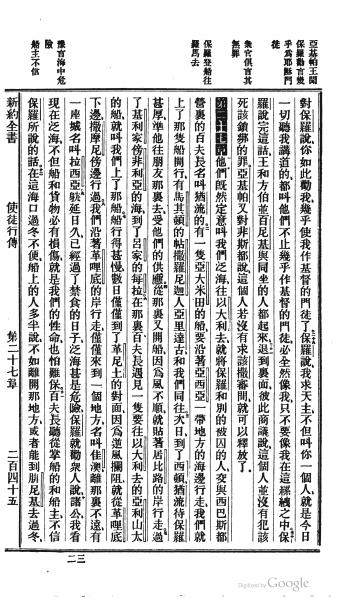 亞基帕王聞
保羅勸言幾
乎爲耶穌門
徒
衆官俱言其
無罪
保羅登船往
羅馬去
豫言海中危
險
船主不信
對保羅說你如此勸我幾乎使我作基督的門徒了保羅說我求天主不但叫你一個人就是今日
一切聽我講道的都叫他們不止幾乎作基督的門徒必全然像我只不要像我在這縲絏之中保
羅說完這話王和方伯並百尼基與同坐的人都起來退到裏面彼此商議說這個人並沒有犯該
死該鎖罪的亞基帕又對非斯都說這個人若沒有求該撒審問就可以釋放了
第二十七章他們既然定意叫我們泛海往以大利去就將保羅和別的被囚的人交與西巴斯都
營裏的百夫長名叫猶流的有一隻亞大米田的船要沿著亞西亞一帶地方的海邊行走我們就
上了那隻船開行有馬其頓的帖撒羅尼迦人亞里達古和我們同往次日到了西頓猶流待保羅
甚厚準他往朋友那裏去受他們的供應從那裏又開船因爲風不順就貼著居比路的岸行走過
了基利家旁非利亞的海到了呂家的每拉在那裏百夫長遇見一隻要往以大利去的亞利山太
的船就叫我們上了那船船行得甚慢數日僅僅到了革尼土的對面因爲逆風攔阻就從革哩底
下邊撒摩尼傍邊行過我們沿著革哩底的岸行走僅僅來到一個地方名叫佳澳離那裏不遠有
一座城名叫拉西亞躭延日久已經過了禁食的日子泛海甚是危險保羅就勸衆人說諸公我看
現在泛海不但船和貨物必有損傷就是我們的性命也怕難保百夫長聽從掌船的和船主不信
保羅所說的話在這海口過冬不便船上的人多半說不如離開那地方或者能到腓尼基去過冬
新約全書　使徒行傳　第二十七章　二百四十五
二三
Digitized by Google